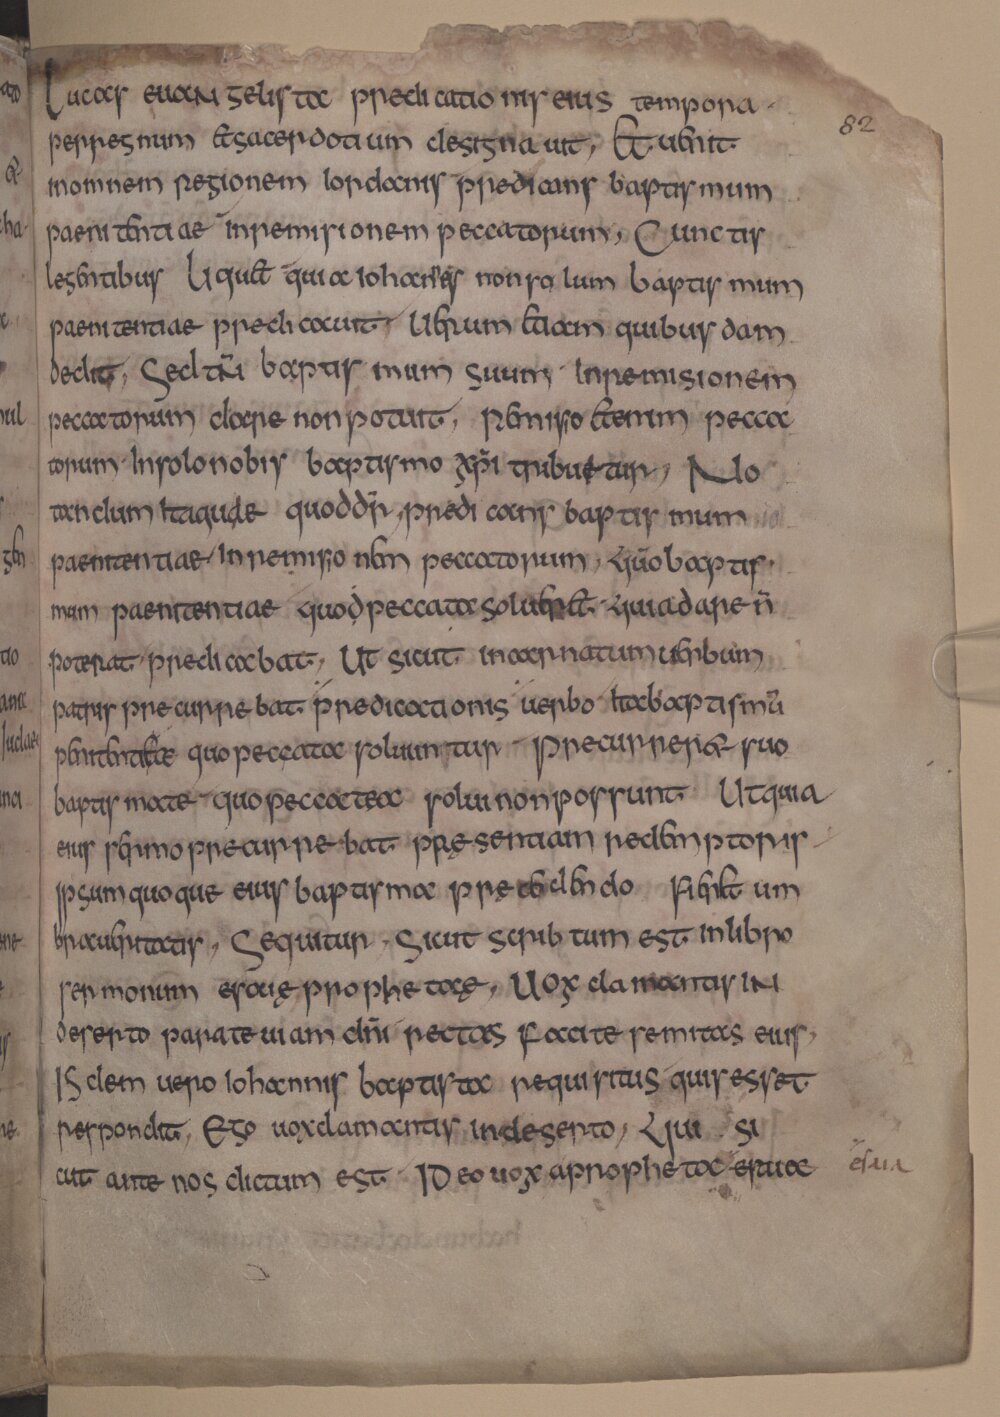 82
Lucas euangelista predicationis eius tempora
per regnum et sacerdotium designauit, Et uenit
in omnem regionem iordanis predicans baptismum
paenitentiae in remisionem peccatorum, Cunctis
legentibus liquet quia iohannes non solum baptismum
paenitentiae predicauit, Uerum etiam quibusdam
dedit, Sed tam̄ baptismum suum in remisionem
peccatorum dare non potuit, Remisio etenim pecca
torum in solo nobis baptismo xp̄i tribuetur, No
tandum itaque quod dr̄, predicans baptismum
paenitentiae in remisionem peccatorum, Qm̄ baptis
mum paenitentiae quod peccata solueret quia dare n̄
poterat predicabat, Ut sicut incarnatum uerbum
patris precurrebat predicationis uerbo ita baptismū
penitentiae quo peccata soluuntur precurreret suo
baptismate quo peccata solui non possunt Ut quia
eius sermo precurrebat presentiam redemptoris
ipsum quoque eius baptisma precedendo fieret um
bra ueritatis, Sequitur, Sicut scribtum est in libro
sermonum esaię prophetaę, Uox clamantis in
deserto parate uiam dn̄i rectas facite semitas eius,
Isdem uero iohannis baptista requisitus quis esset
respondit, Ego uox clamantis in deserto, Qui si
cut ante nos dictum est Ideo uox a propheta esaia
esaia